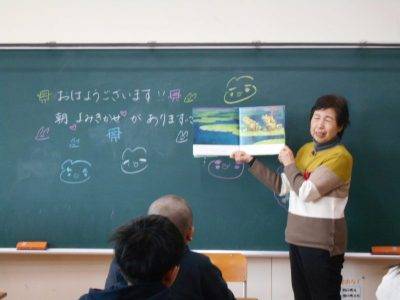 おはようございます!!
朝 よみきかせ♡が あります